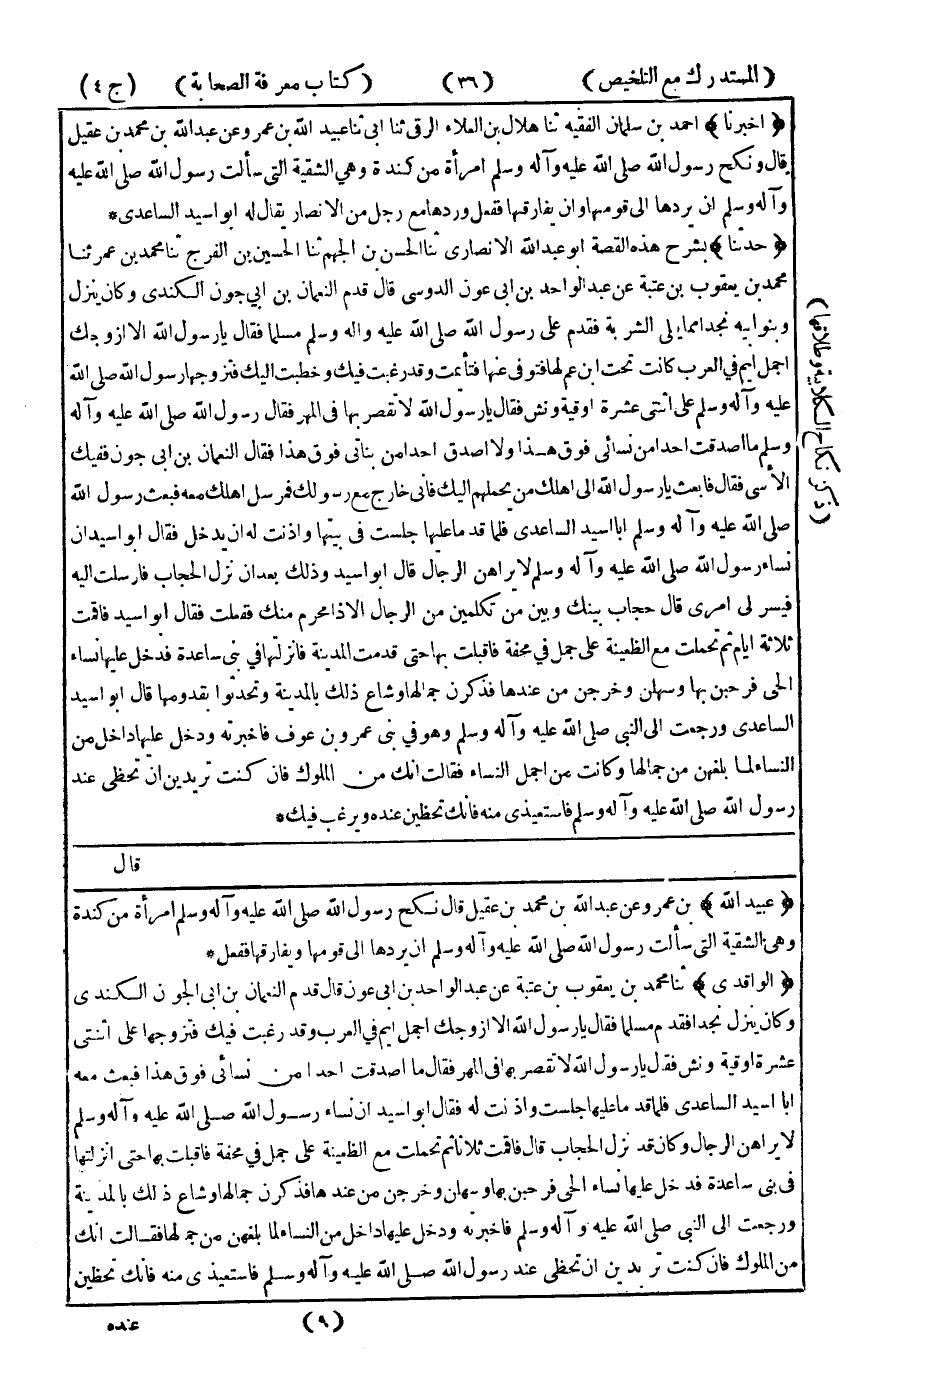 (المستدرك مع التلخيص) (٣٦) (كتاب معرفة الصحابة) (ج ٤)
﴿ اخبرنا ﴾ احمد بن سلمان الفقيه ثنا هلال بن العلاء الرقى ثنا ابى ثنا عبيد الله بن عمرو عن عبدالله بن محمد بن عقيل
قال ونكح رسول الله صلى الله عليه وآله وسلم امرأة من كندة وهى الشقية التى سألت رسول الله صلى الله عليه
وآله وسلم ان يردها الى قومها وان يفارقها ففعل وردها مع رجل من الانصار يقال له ابو اسيد الساعدى*
﴿ حدثنا ﴾ بشرح هذه القصة ابو عبدالله الانصارى ثنا الحسن بن الجهم ثنا الحسين بن الفرج ثنا محمد بن عمر ثنا
محمد بن يعقوب بن عتبة عن عبد الواحد بن ابى عون الدوسى قال قدم النعمان بن ابي جون الكندى وكان ينزل
وبنو ابيه نجدا مما يلى الشربة فقدم على رسول الله صلى الله عليه واله وسلم مسلما فقال يا رسول الله الا ازوجك
اجمل ايم في العرب كانت تحت ابن عم لها فتوفى عنها فتأيمت وقد رغبت فيك وخطبت اليك فتزوجها رسول الله صلى الله
عليه وآله وسلم على اثنتى عشرة اوقية ونش فقال يا رسول الله لا تقصر بها فى المهر فقال رسول الله صلى الله عليه وآله
وسلم ما اصدقت احدا من نسائى فوق هذا ولا اصدق احدا من بناتى فوق هذا فقال النعمان بن ابى جون ففيك
الأسى فقال فابعث يا رسول الله الى اهلك من يحملهم اليك فانى خارج مع رسولك فمرسل اهلك معه فبعث رسول الله
صلى الله عليه وآله وسلم ابا اسيد الساعدى فلما قدما عليها جلست فى بيتها واذنت له ان يدخل فقال ابو اسيد ان
نساء رسول الله صلى الله عليه وآله وسلم لا يراهن الرجال قال ابو اسيد وذلك بعد ان نزل الحجاب فارسلت اليه
فيسر لى امرى قال حجاب بينك وبين من تكلمين من الرجال الا ذا محرم منك ففعلت فقال ابو اسيد فاقمت
ثلاثة ايام ثم تحملت مع الظعينة على جمل فى محفة فاقبلت بها حتى قدمت المدينة فانزلتها في بنى ساعدة فدخل عليها نساء
الحى فرحبن بها وسهلن وخرجن من عندها فذكرن جمالها وشاع ذلك بالمدينة وتحدثوا بقدومها قال ابو اسيد
الساعدى ورجعت الى النبى صلى الله عليه وآله وسلم وهو فى بنى عمرو بن عوف فاخبرته ودخل عليها داخل من
النساء لما بلغهن من جمالها وكانت من اجمل النساء فقالت انك من الملوك فان كنت تريدين ان تحظى عند
رسول الله صلى الله عليه وآله وسلم فاستعيذى منه فانك تحظين عنده ويرغب فيك*
قال
﴿ عبيد الله ﴾ بن عمرو عن عبدالله بن محمد بن عقيل قال نكح رسول الله صلى الله عليه وآله وسلم امرأة من كندة
وهى الشقية التى سألت رسول الله صلى الله عليه وآله وسلم ان يردها الى قومها ويفارقها ففعل*
﴿ الواقدى ﴾ ثنا محمد بن يعقوب بن عتبة عن عبد الواحد بن ابى عون قال قدم النعمان بن ابى الجون الكندى
وكان ينزل نجدا فقدم مسلما فقال يا رسول الله الا ازوجك اجمل ايم فى العرب وقد رغبت فيك فتزوجها على اثنتى
عشرة اوقية ونش فقال يا رسول الله لا تقصر بها فى المهر فقال ما اصدقت احدا من نسائى فوق هذا فبعث معه
ابا اسيد الساعدى فلما قدما عليها جلست واذنت له فقال ابو اسيد ان نساء رسول الله صلى الله عليه وآله وسلم
لا يراهن الرجال وكان قد نزل الحجاب قال فاقمت ثلاثا ثم تحملت مع الظعينة على جمل في محفة فاقبلت بها حتى انزلتها
فى بنى ساعدة فدخل عليها نساء الحى فرحبن بها وسهلن وخرجن من عندها فذكرن جمالها وشاع ذلك بالمدينة
ورجعت الى النبى صلى الله عليه وآله وسلم فاخبرته ودخل عليها داخل من النساء لما بلغهن من جمالها فقالت انك
من الملوك فان كنت تريدين ان تحظى عند رسول الله صلى الله عليه وآله وسلم فاستعيذى منه فانك تحظين
(٩) عنده
(ذكر نكاح الكلابية وطلاقها)